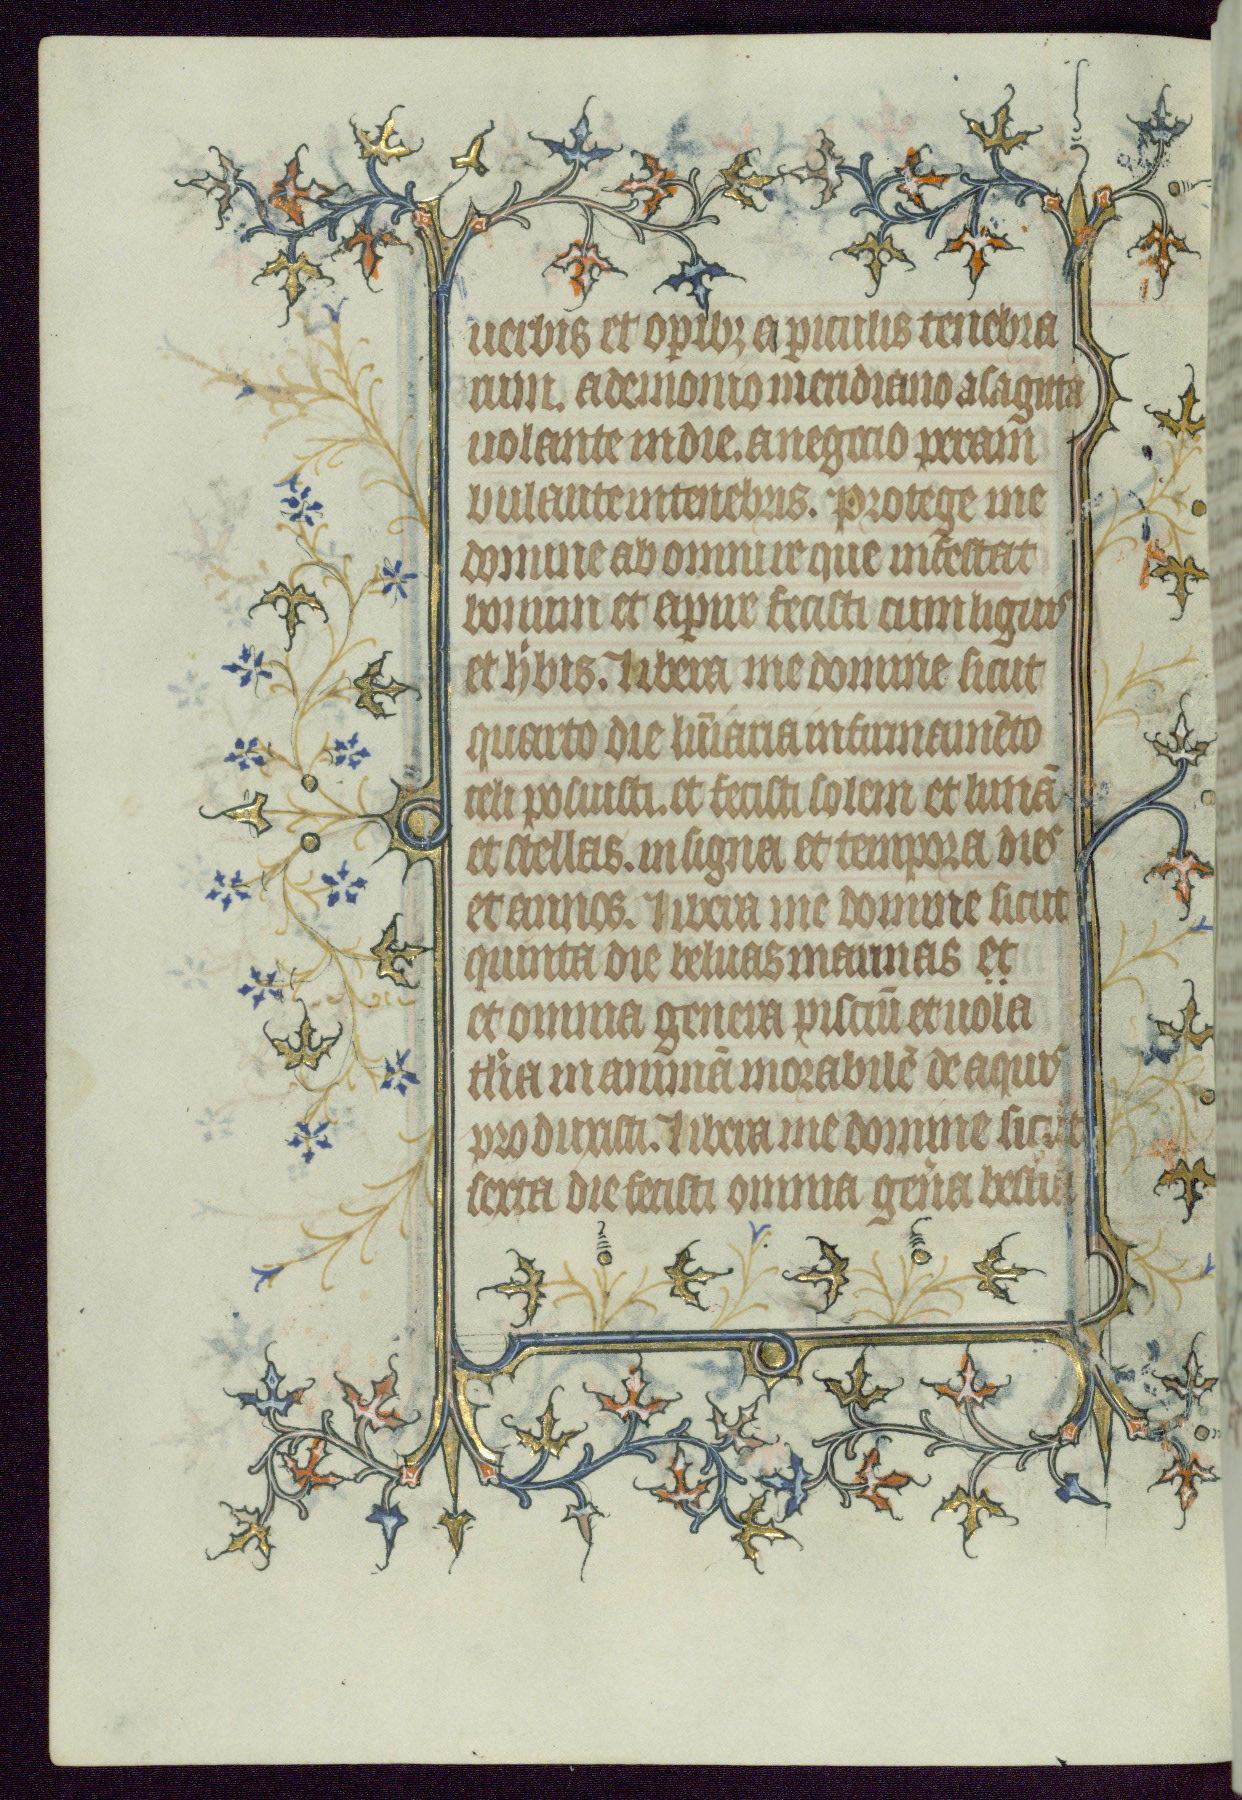 uerbis et opibꝫ a piculis tenebra
rum. a demonio meridiano a sagitta
uolante in die. a negocio peram̄
bulante in tenebris. Protege me
domine ab omni re que infestat
bonum et a pure fecisti cum lignis
et h̓bis. Libera me domine sicut
quarto die lūiaria in firmamēto
celi posuisti. et fecisti solem et lunā
et stellas. in signa et tempora dies
et annos. Libera me domine sicut
quinta die beluas marinas et
et omnia genera pisciū et uola
tlia in animā morabilē de aquis
produxisti. Libera me domine sicut
sexta die fecisti omnia gen̓a bestia